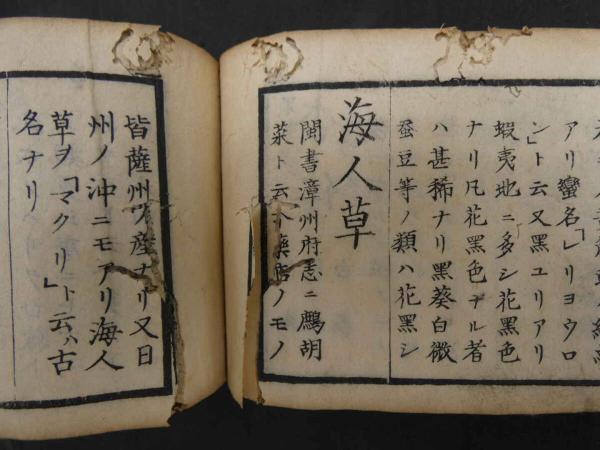 アリ蠻名「レリヨウロ
ン」ト云又黑ユリアリ
蝦夷地ニ多シ花黑色
ナリ凡花黑色ナル者
ハ甚稀ナリ黑葵白微
蚕豆等ノ類ハ花黑シ
海人草
閩書漳州府志ニ鷓胡
菜ト云今藥店ノモノ
皆薩州ノ産ナリ又日
州ノ沖ニモアリ海人
草ヲ「マクリ」ト云ハ古
名ナリ